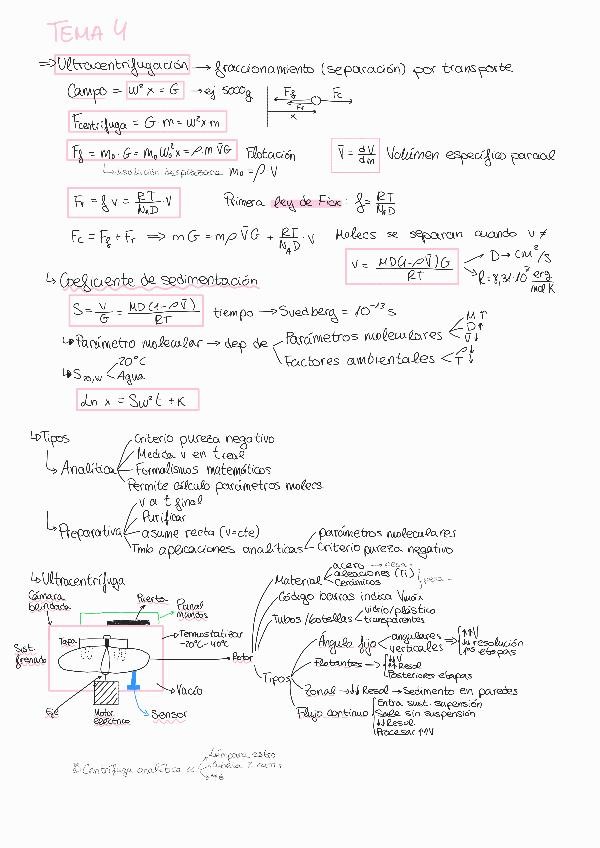 TEMA 4
⇒ Ultracentrifugación → fraccionamiento (separación) por transporte.
Campo = w² x = G → ej 5000g
Ff Fc
Fr
x
Fcentrífuga = G·m = w² x m
Ff = m₀·G = m₀ w² x = ρ m V̄ G Flotación V̄ = dV/dm Volumen específico parcial
m₀ = ρ V
Fr = f v = RT/NₐD · v Primera ley de Fick: f = RT/NₐD
Fc = Ff + Fr ⇒ m G = m ρ V̄ G + RT/NₐD · v Molecs se separan cuando v ≠
v = MD(1-ρV̄)G / RT D → cm²/s
R = 8,31·10⁷ erg/mol K
↳ Coeficiente de sedimentación
S = v/G = MD(1-ρV̄)/RT tiempo → Svedberg = 10⁻¹³ s
↳ Parámetro molecular → dep de Parámetros moleculares M↑ D↑ V̄↓
Factores ambientales ρ↓ T↓
↳ S₂₀,w 20°C
Agua
Ln x = Sw²t + K
↳ Tipos
↳ Analítica Criterio pureza negativo
Medida v en t real
Formalismos matemáticos
Permite cálculo parámetros molecs
↳ Preparativa v a t final
Purificar
asume recta (v=cte)
Tmb aplicaciones analíticas parámetros moleculares
Criterio pureza negativo
↳ Ultracentrífuga
Cámara blindada
Puerta
Panel mandos
Sist. frenado
Tapa
Termostatizar -20°C - 40°C
Rotor
Vacío
Eje
Motor eléctrico
Sensor
Material acero
aleaciones (Ti)
Cerámicos
Código barras indica Vmáx
Tubos/botellas vidrio/plástico
transparentes
Tipos
Ángulo fijo angulares
verticales ↑↑V
↓↓ resolución
1ªs etapas
Flotantes → ↓V
↑Resol
Posteriores etapas
Zonal → ↓↓ Resol → Sedimento en paredes
Flujo continuo Entra sust. suspensión
Sale sin suspensión
↓↓ Resol
Procesar ↑↑V
Centrífuga analítica
Lámpara